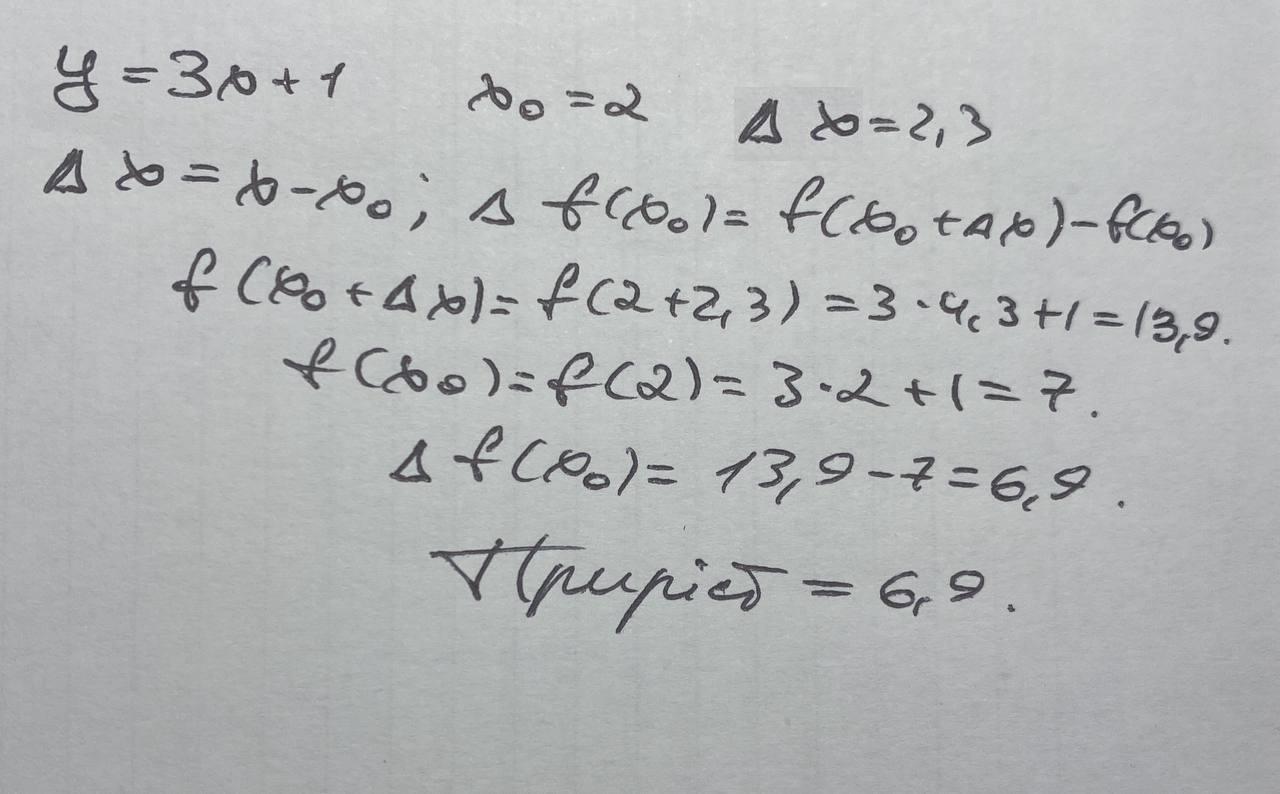 y = 3x + 1 x₀ = 2 Δ x = 2,3
Δ x = x - x₀; Δ f(x₀) = f(x₀ + Δx) - f(x₀)
f(x₀ + Δx) = f(2 + 2,3) = 3 · 4,3 + 1 = 13,9.
f(x₀) = f(2) = 3 · 2 + 1 = 7.
Δ f(x₀) = 13,9 - 7 = 6,9.
Приріст = 6,9.